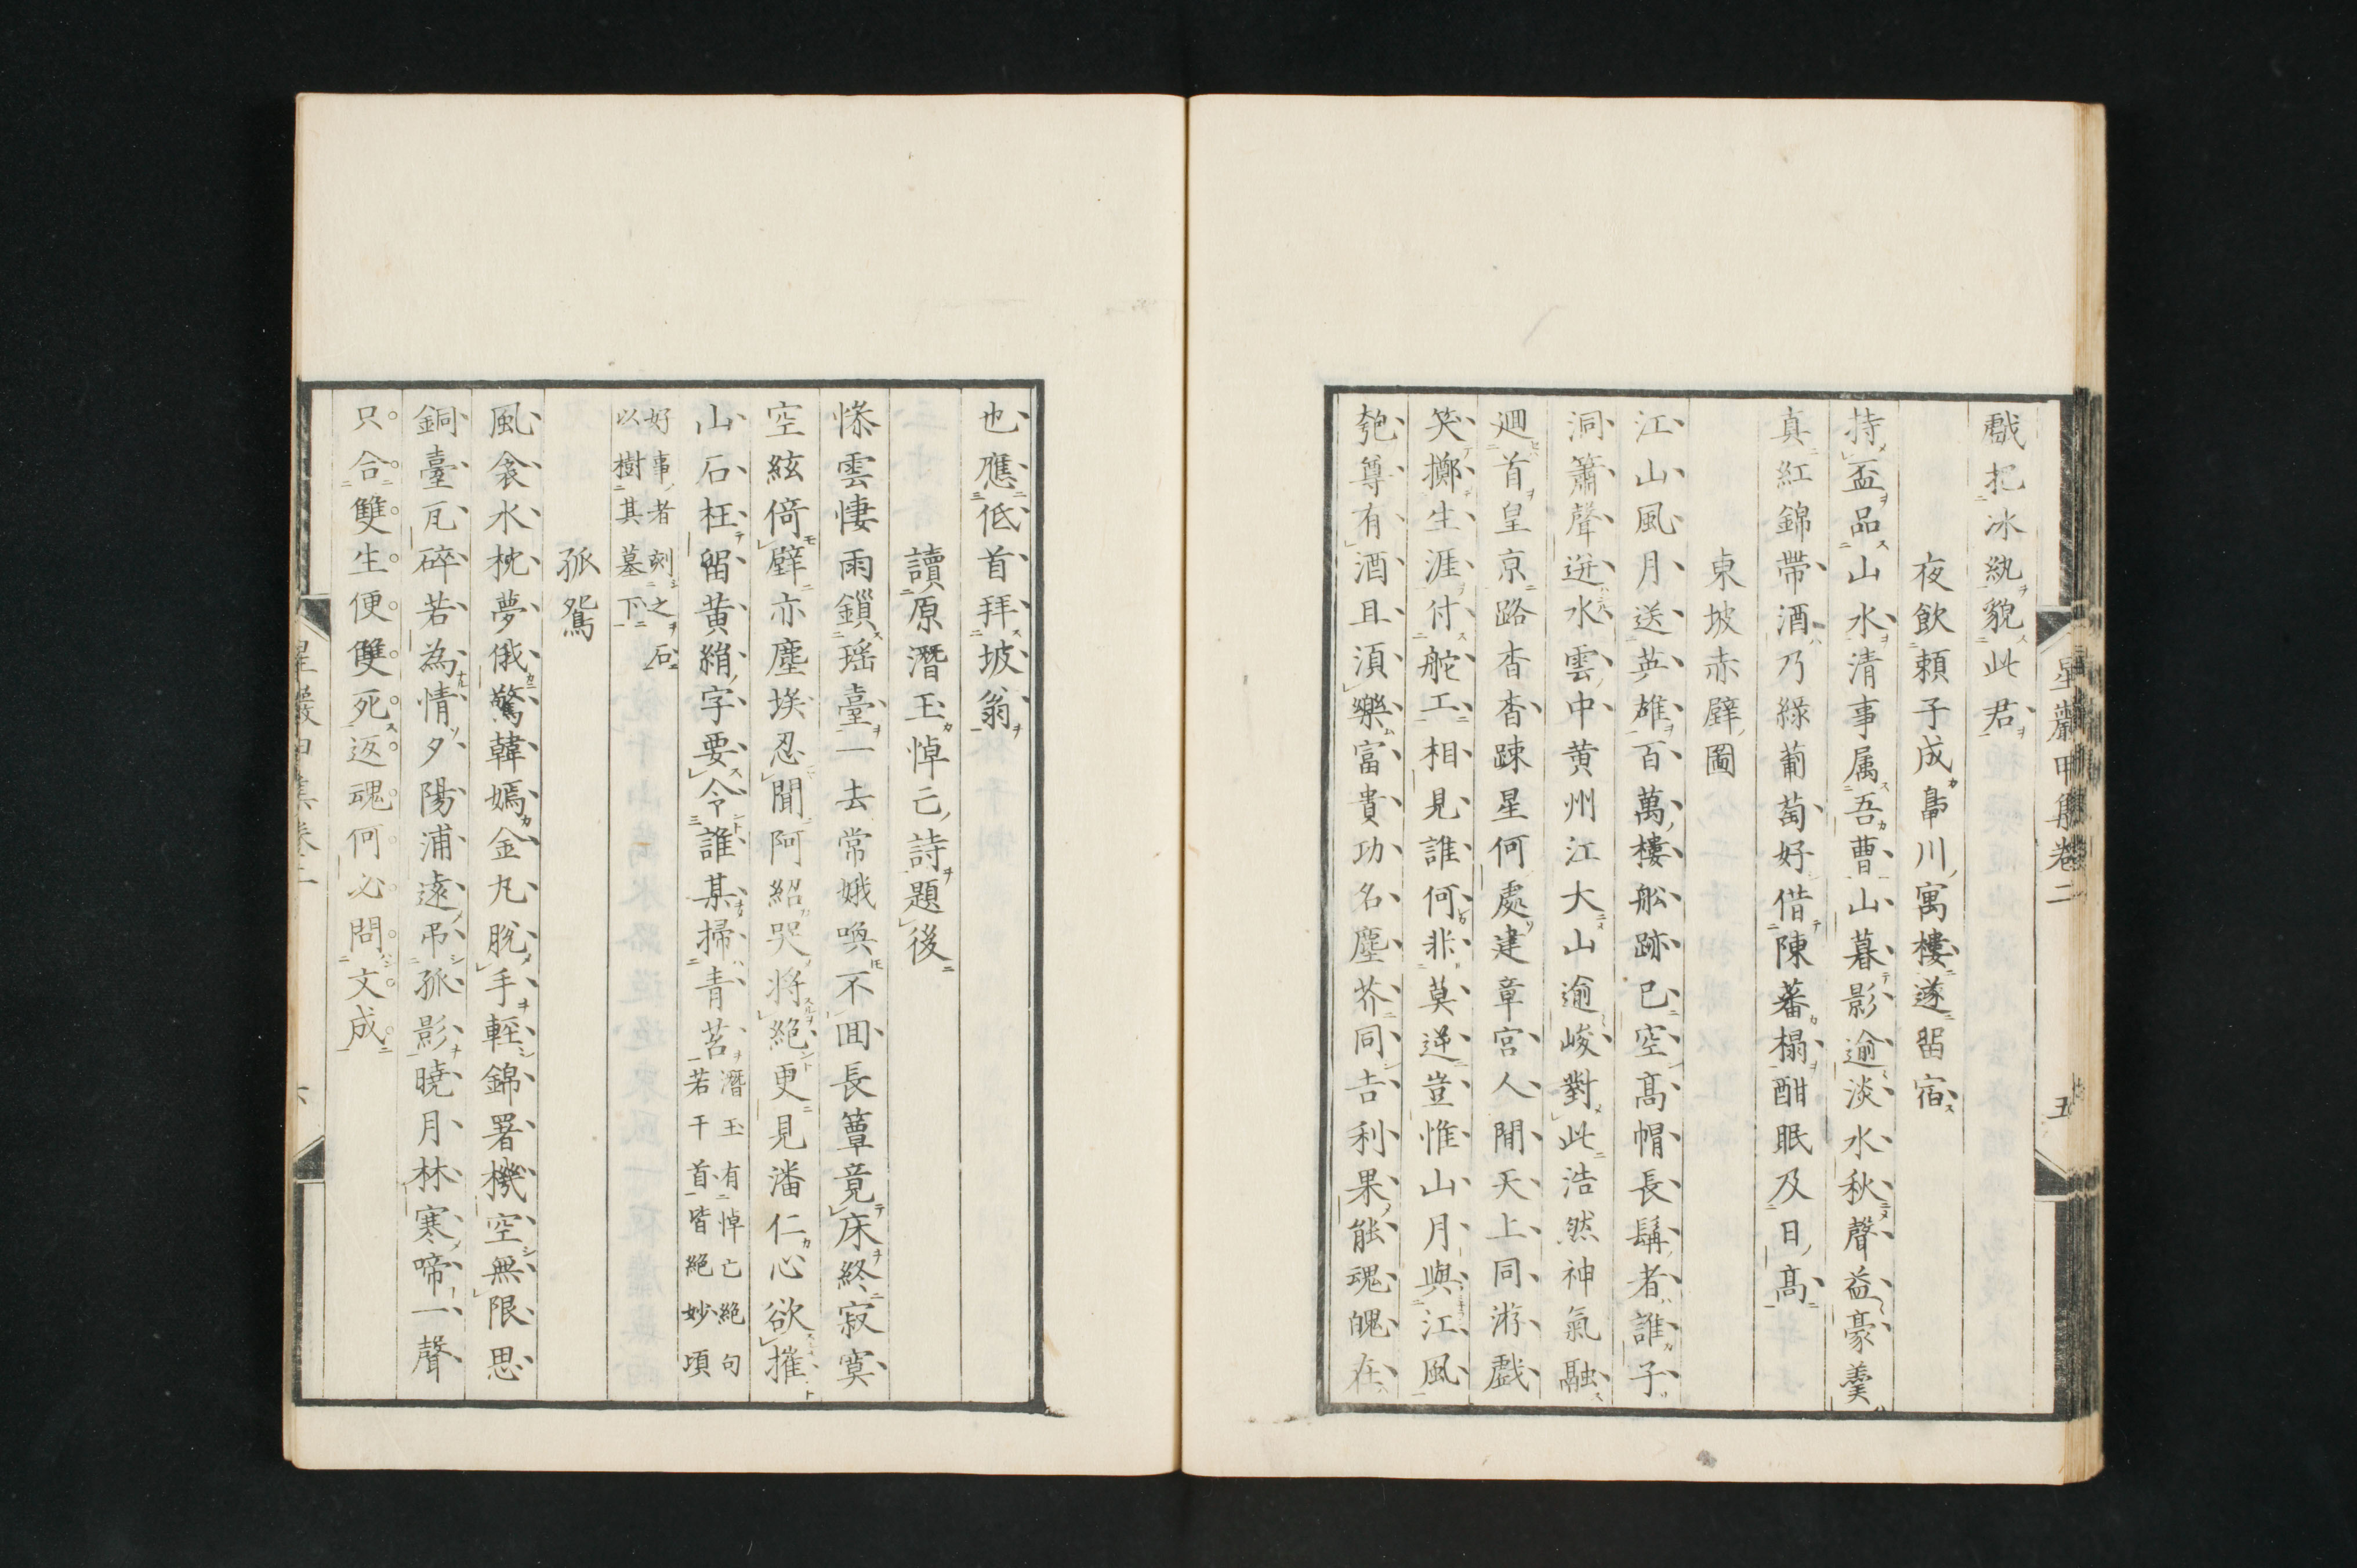 星巖甲集卷二
五
戲把冰紈貌此君
夜飲賴子成鼻川寓樓遂留宿
持盃品山水清事属吾曹山暮影逾淡水秋聲益豪羹
真紅錦帶酒乃綠葡萄好借陳蕃榻酣眠及日高
東坡赤壁圖
江山風月送英雄百萬樓船跡已空高帽長鬚者誰子
洞簫聲迸水雲中黄州江大山逾峻對此浩然神氣融
廻首皇京路杳杳踈星何處建章宮人間天上同游戲
笑擲生涯付舵工相見誰何非莫逆豈惟山月與江風
匏尊有酒且須樂富貴功名塵芥同吉利果能魂魄在
也應低首拜坡翁
讀原潛玉悼亡詩題後
惨雲悽雨鎖瑶臺一去常娥喚不囬長簟竟床終寂寞
空絃倚壁亦塵埃忍聞阿紹哭將絶更見潘仁心欲摧
山石枉留黄絹字要令誰某掃青苔潛玉有悼亡絶句若干首皆絶妙頃
好事者刻之石以樹其墓下
孤鴛
風衾水枕夢俄驚韓嫣金丸脫手輕錦署機空無限思
銅臺瓦碎若為情夕陽浦遠弔孤影曉月林寒啼一聲
只合雙生便雙死返魂何必問文成
星巖甲集卷二
六